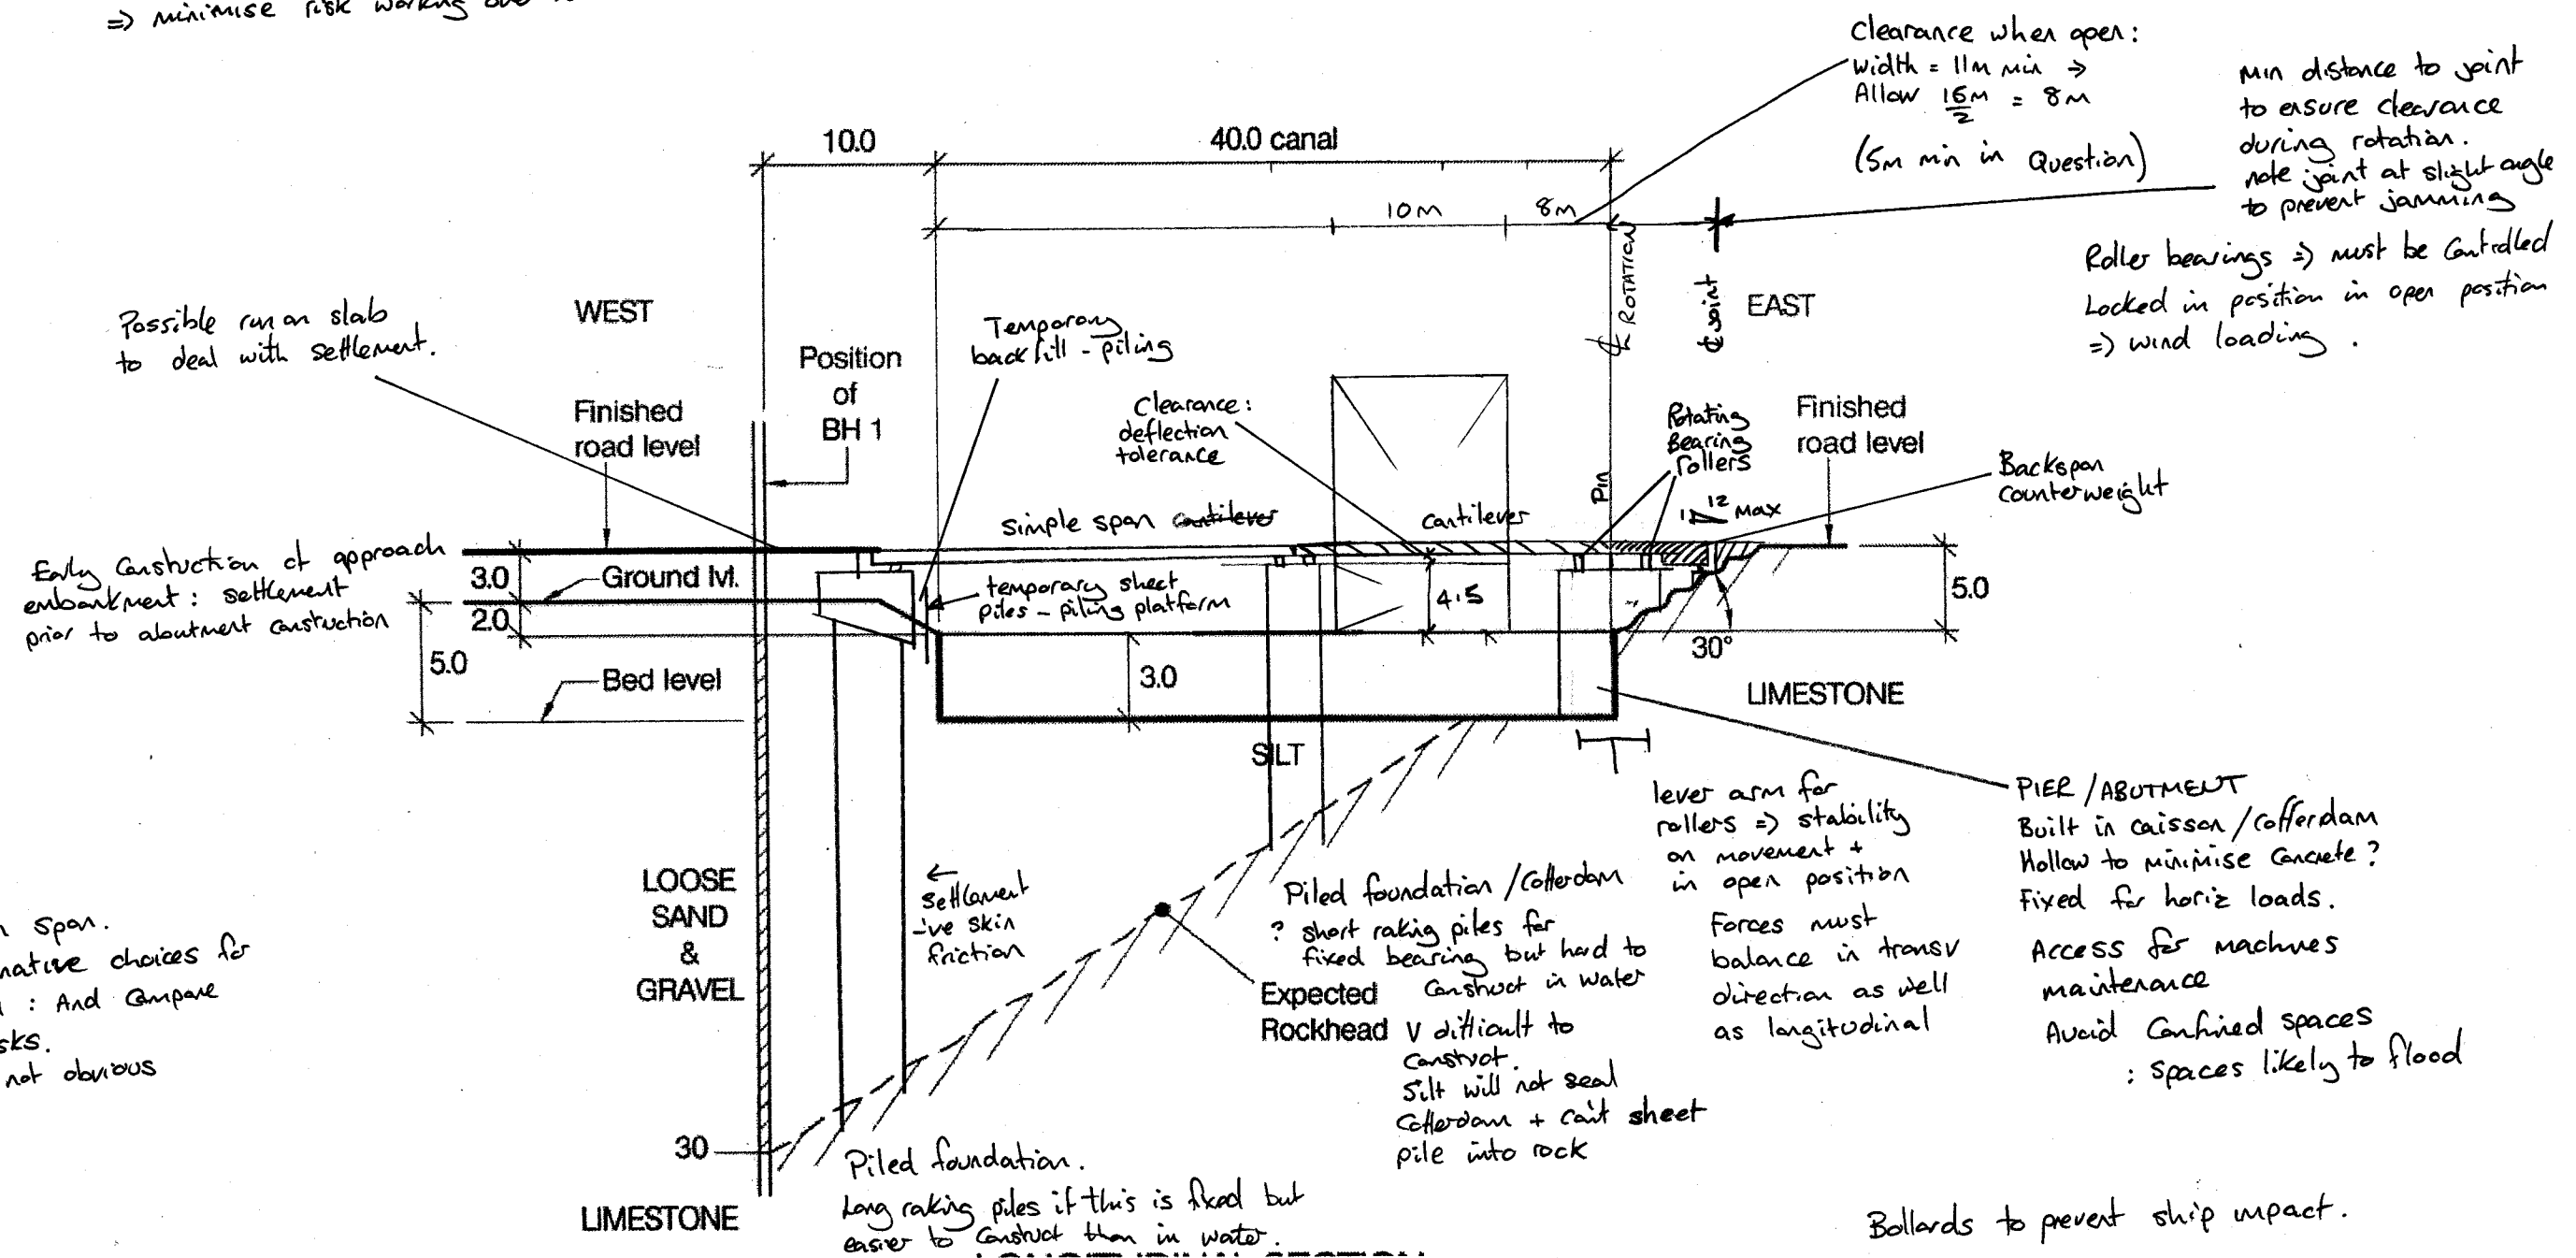 => minimise risk working
Clearance when open:
width = 11m min =>
Allow 16m/2 = 8m
(5m min in Question)
Min distance to joint
to ensure clearance
during rotation.
note joint at slight angle
to prevent jamming
Roller bearings => must be Controlled
Locked in position in open position
=> wind loading.
10.0
40.0 canal
10m
8m
℄ ROTATION
℄ joint
WEST
EAST
Possible run on slab
to deal with settlement.
Position
of
BH 1
Temporary
backfill - piling
Finished
road level
Clearance:
deflection
tolerance
Rotating
Bearing
rollers
Finished
road level
Pin
Backspan
counterweight
1 12 Max
simple span cantilever
cantilever
Early Constuction of approach
embankment: settlement
prior to aboutment constuction
3.0
Ground lvl.
2.0
5.0
Bed level
temporary sheet
piles - piling platform
4.5
5.0
30°
3.0
LIMESTONE
SILT
PIER / ABUTMENT
Built in caisson / Cofferdam
Hollow to minimise Concrete?
Fixed for horiz loads.
Access for machines
maintenance
Avoid Confined spaces
: spaces likely to flood
lever arm for
rollers => stability
on movement +
in open position
Forces must
balance in transv
direction as well
as longitudinal
LOOSE
SAND
&
GRAVEL
←
Settlement
-'ve skin
friction
Piled foundation / Cofferdam
? short raking piles for
fixed bearing but hard to
Construct in water
Expected
Rockhead
V difficult to
Construct.
Silt will not seal
Cofferdam + can't sheet
pile into rock
span.
native choices for
: And Compare
sks.
not obvious
30
LIMESTONE
Piled foundation.
Long raking piles if this is fixed but
easier to Construct than in water.
LONGITUDINAL SECTION
Bollards to prevent ship impact.